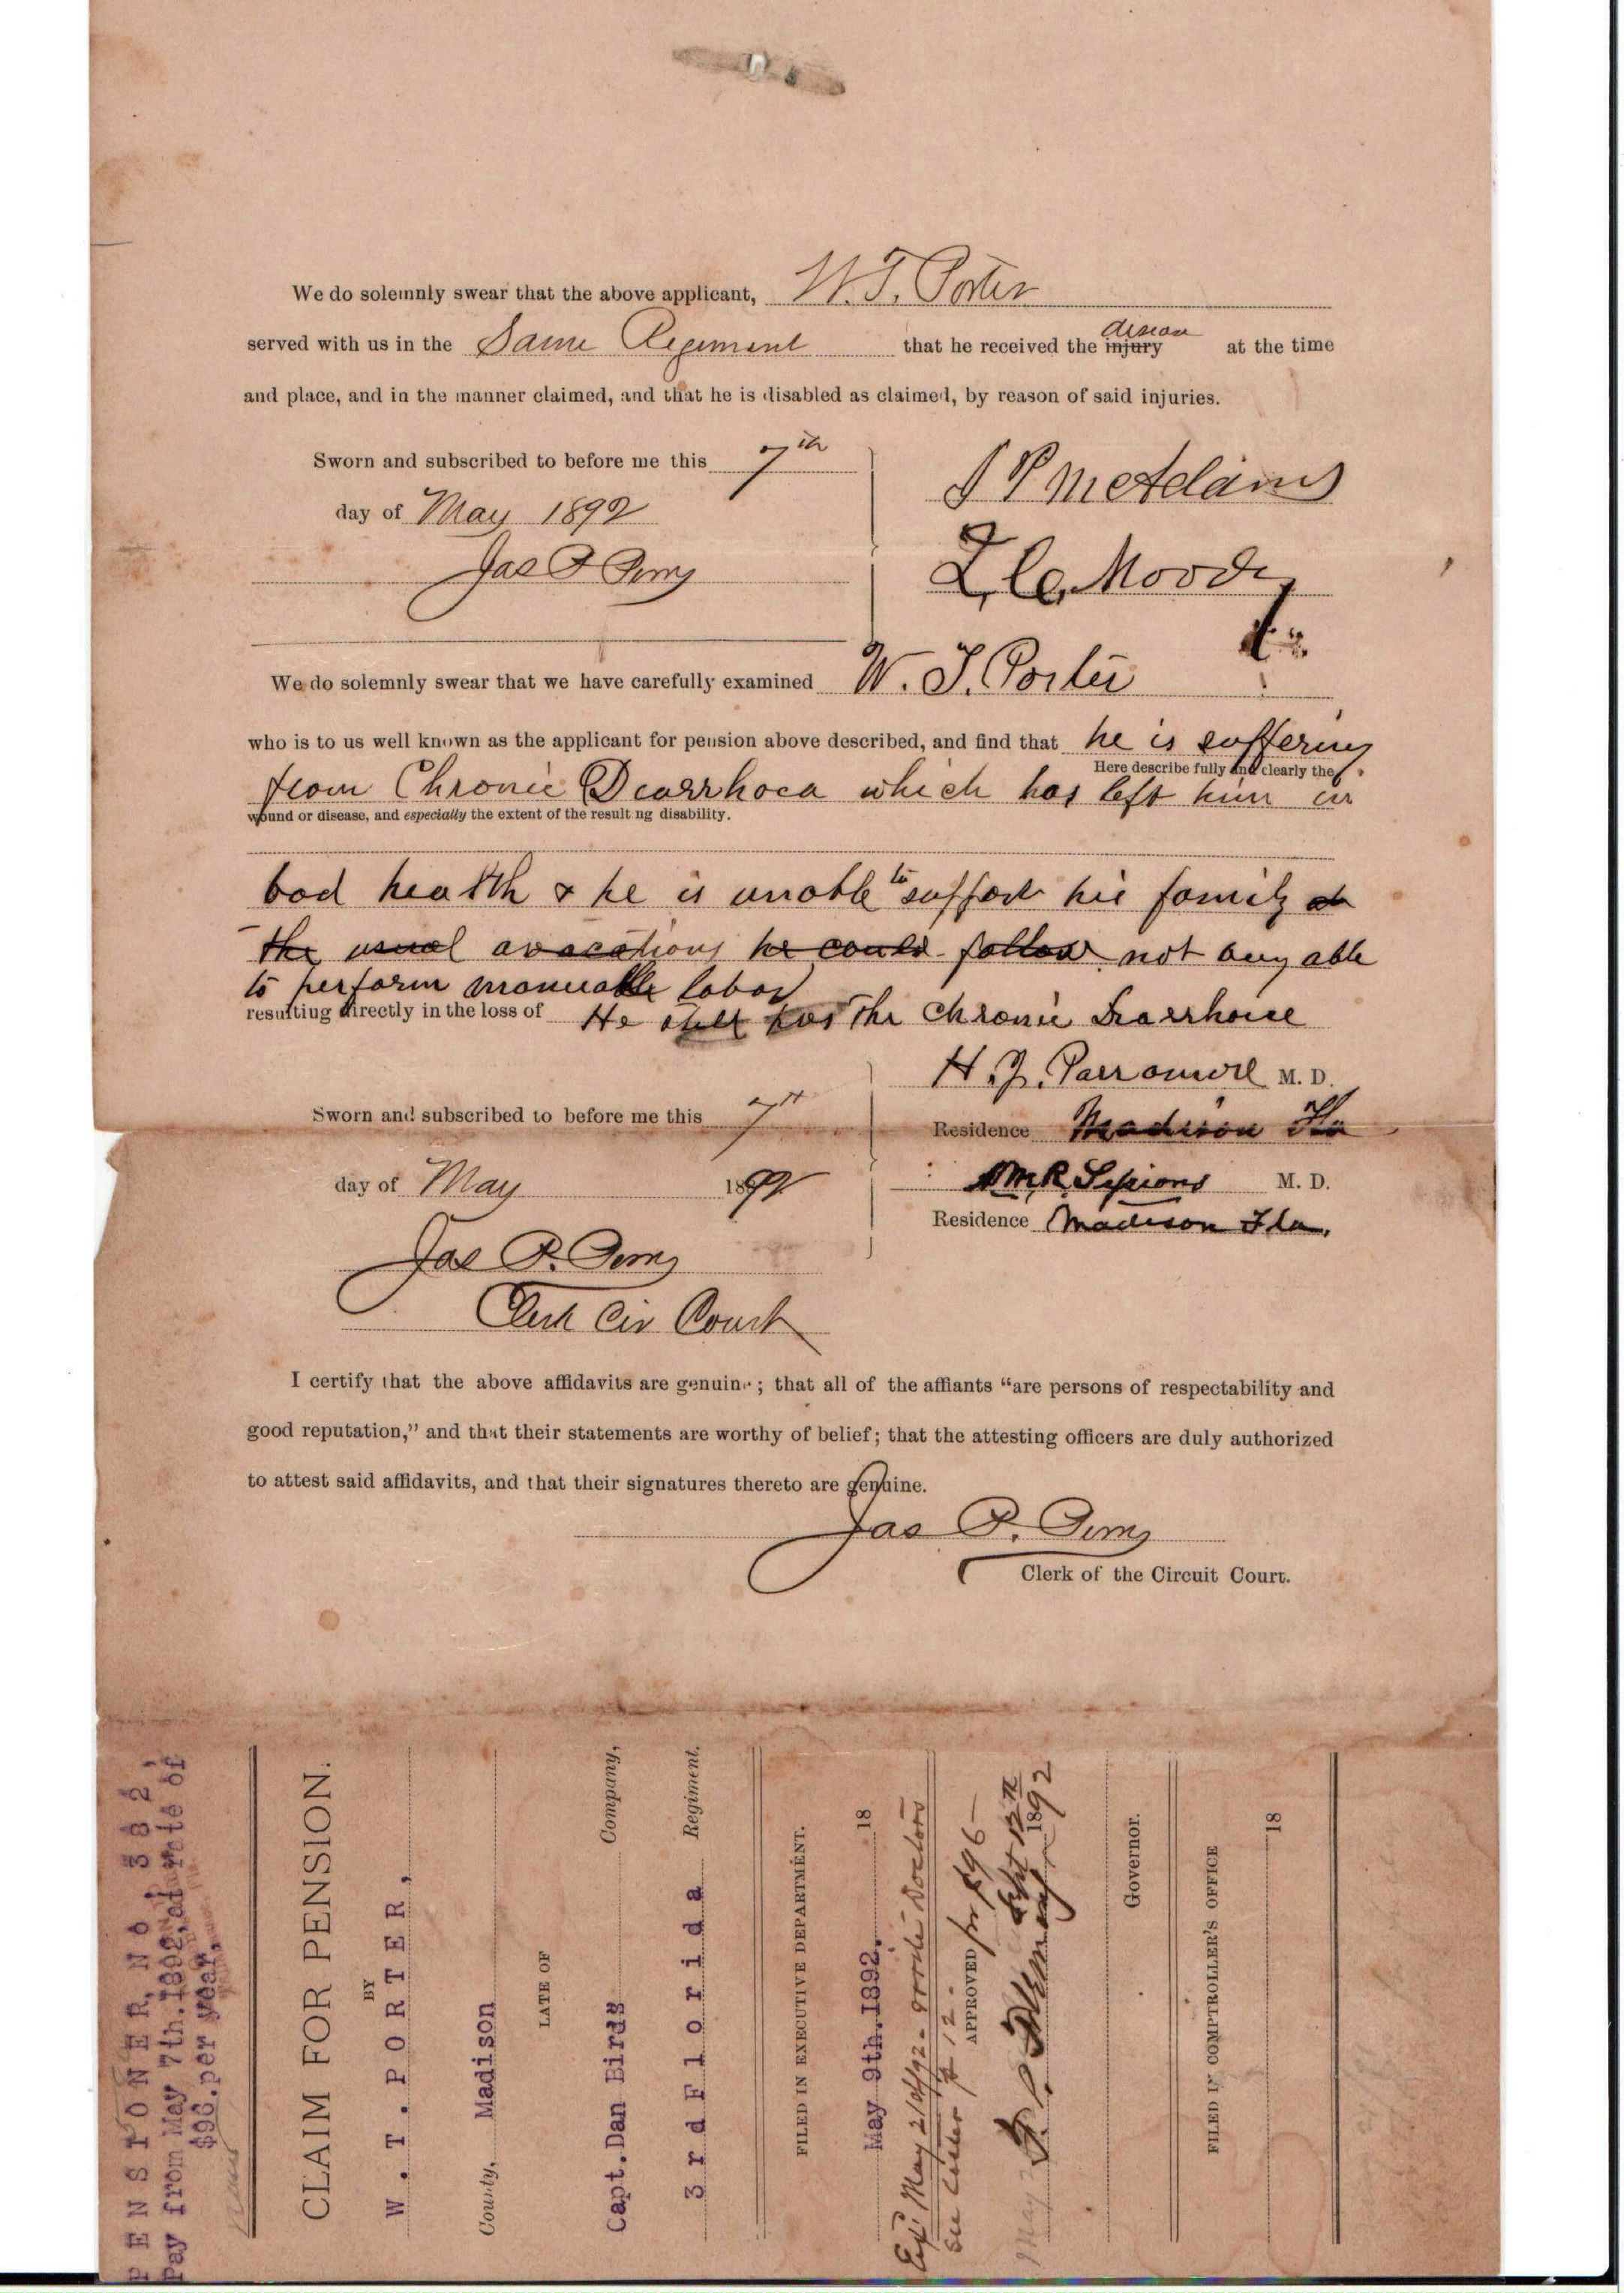 We do solemnly swear that the above applicant, W. T. Porter
served with us in the Same Regiment that he received the injury disease at the time
and place, and in the manner claimed, and that he is disabled as claimed, by reason of said injuries.
Sworn and subscribed to before me this 7th
day of May 1892
Jas P Perry
McAdams
L. C. Moody
We do solemnly swear that we have carefully examined W. T. Porter
who is to us well known as the applicant for pension above described, and find that he is suffering
Here describe fully and clearly the
from Chronic Diarrhoea which has left him in
wound or disease, and especially the extent of the resulting disability.
bad health & he is unable to support his family at
the usual avocations he could follow not being able
to perform manual labor
resulting directly in the loss of He still has the Chronic Diarrhoea
H. J. Parramore M. D.
Sworn and subscribed to before me this 7th
Residence Madison Fla
day of May 1892
M. D.
Residence Madison Fla.
Jas P. Perry
Clerk Cir Court
I certify that the above affidavits are genuine; that all of the affiants "are persons of respectability and
good reputation," and that their statements are worthy of belief; that the attesting officers are duly authorized
to attest said affidavits, and that their signatures thereto are genuine.
Jas P. Perry
Clerk of the Circuit Court.
PENSIONER, No. 382,
Pay from May 7th. 1892, at rate of
$96. per year,
CLAIM FOR PENSION.
BY
W. T. PORTER,
County, Madison
LATE OF
Capt. Dan Birds Company,
3rd Florida Regiment.
FILED IN EXECUTIVE DEPARTMENT.
May 9th. 1892. 18
May 21st/92 - wrote Doctors
see letter
APPROVED for $96-
Sept 12th
1892
F. P. Fleming
Governor.
FILED IN COMPTROLLER'S OFFICE
18